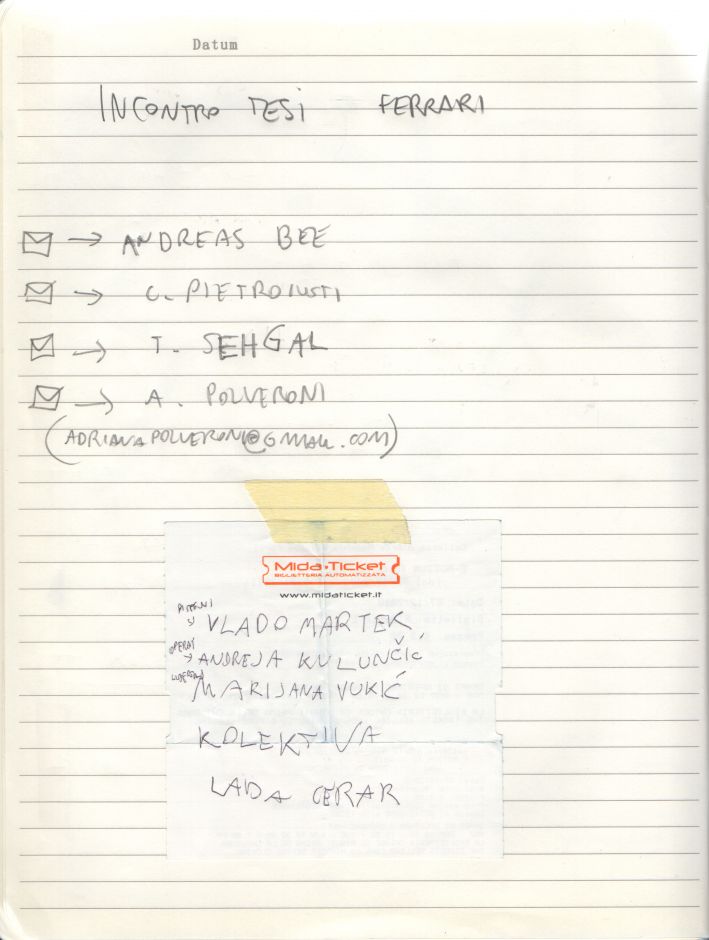 Datum
INCONTRO TESI FERRARI
ANDREAS BEE
C. PIETROIUSTI
T. SEHGAL
A. POLVERONI
(ADRIANAPOLVERONI@GMAIL.COM)
Mida·Ticket
BIGLIETTERIA AUTOMATIZZATA
www.midaticket.it
VLADO MARTEK
ANDREJA KULUNČIĆ
MARIJANA VUKIĆ
KOLEKTIVA
LADA CERAR